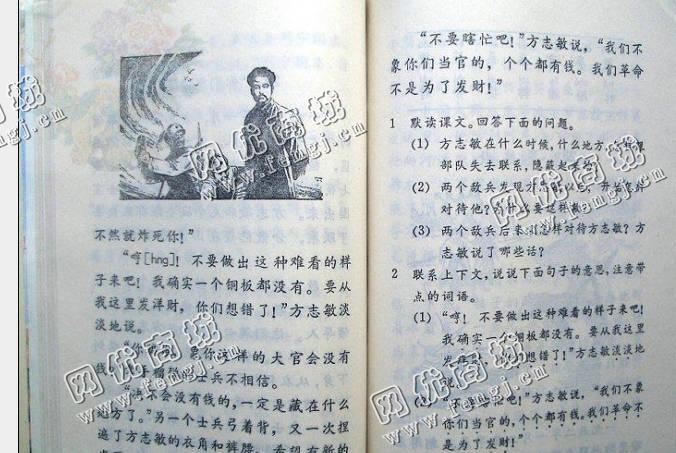 不然就炸死你！”
“哼[hng]！不要做出这种难看的样
子来吧！我确实一个铜板都没有。要从
我这里发洋财，你们想错了！”方志敏淡
淡地说。
“你 象你这样的大官会没有
钱 士兵不相信。
会没有钱的，一定是藏在什么
地方了。”另一个士兵弓着背，又一次捏
遍了方志敏的衣角和裤腰，希望有新的
“不要瞎忙吧！”方志敏说，“我们不
象你们当官的，个个都有钱。我们革命
不是为了发财！”
1 默读课文。回答下面的问题。
(1) 方志敏在什么时候，什么地方，
部队失去联系，隐蔽起
(2) 两个敌兵发现方志敏以
对待他？ 要这样
(3) 两个敌兵后来怎样对待方志敏？方
志敏说了哪些话？
2 联系上下文，说说下面句子的意思，注意带
点的词语。
(1) “哼！不要做出这种难看的样子来吧！
我确实一个铜板都没有。要从我这里
发洋财，你们想错了！”方志敏淡淡地
说。
(2) “不要瞎忙吧！”方志敏说，“我们不象
你们当官的，个个都有钱。我们革命不
是为了发财！”
网优商城
www.fengj.cn